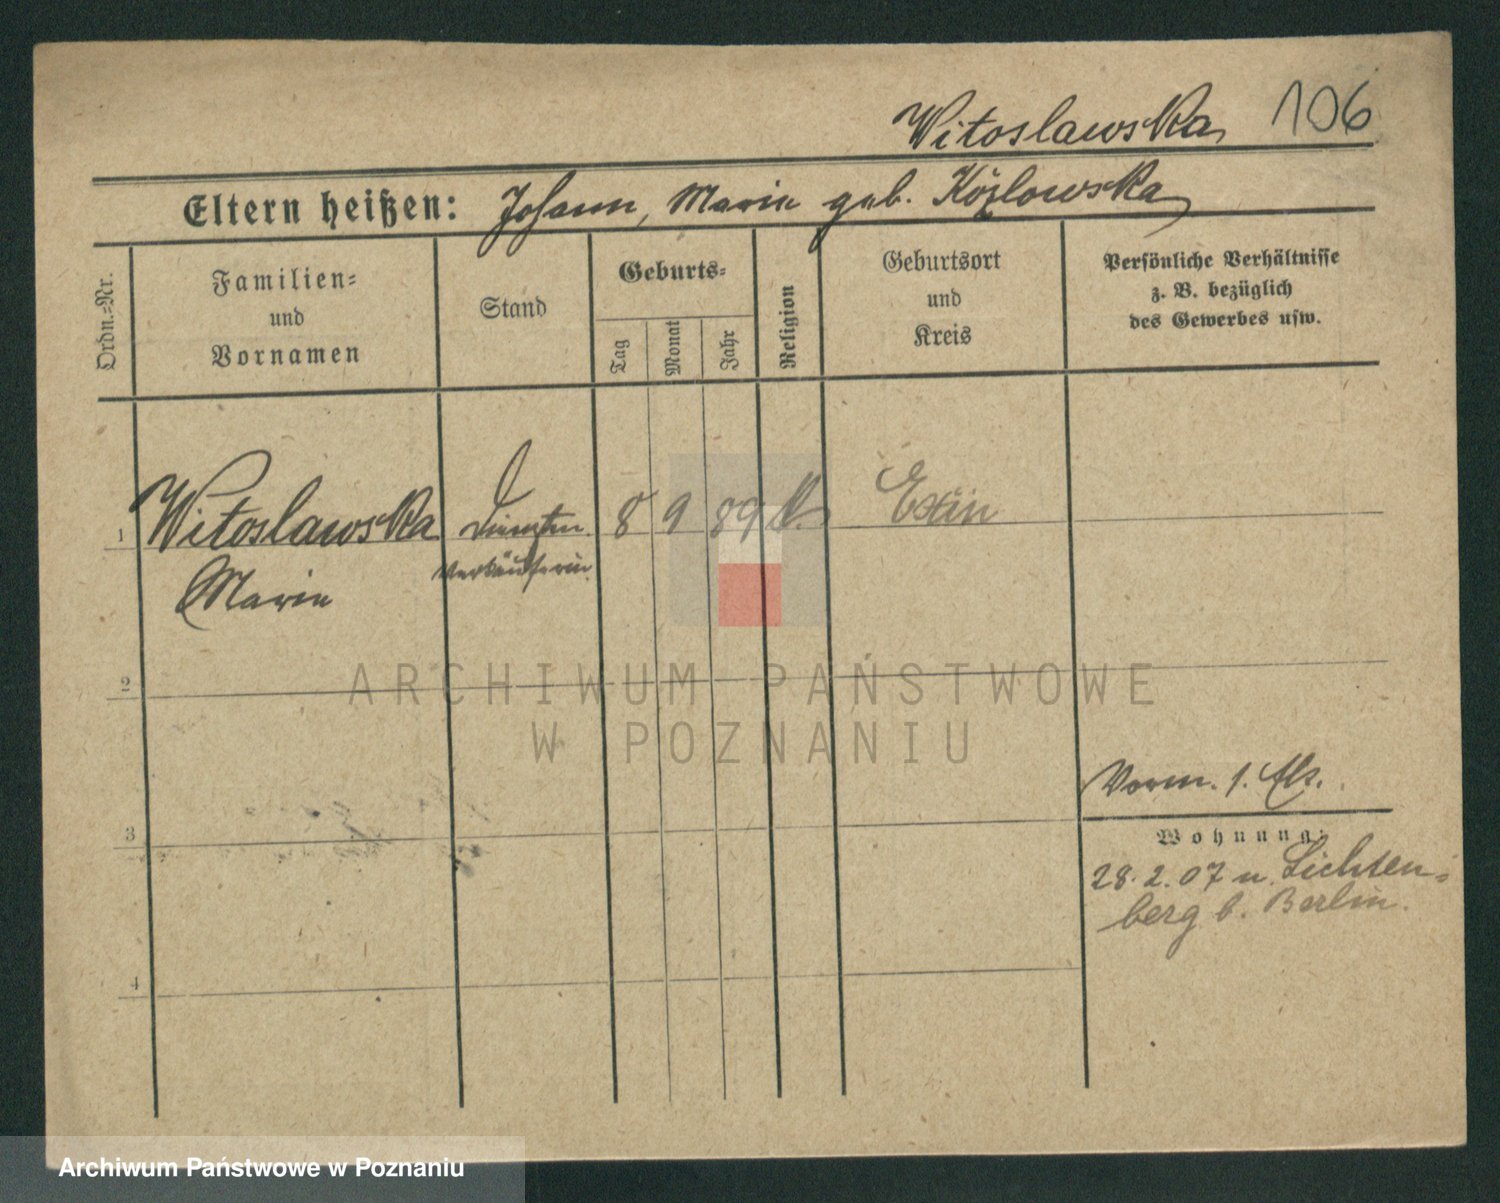 Witoslawska 106
Eltern heißen: Johann, Marie geb. Kózlowska
Ordn.=Nr.
Familien=
und
Vornamen
Stand
Geburts=
Tag
Monat
Jahr
Religion
Geburtsort
und
Kreis
Persönliche Verhältnisse
z. B. bezüglich
des Gewerbes usw.
1 Witoslawska 8 9 89 k. Exin
Verkäuferin
Marie
2
ARCHIWUM PAŃSTWOWE
W POZNANIU
Vorm. 1.
3
Wohnung:
28. 2. 07 n. Lichten=
berg b. Berlin.
4
Archiwum Państwowe w Poznaniu